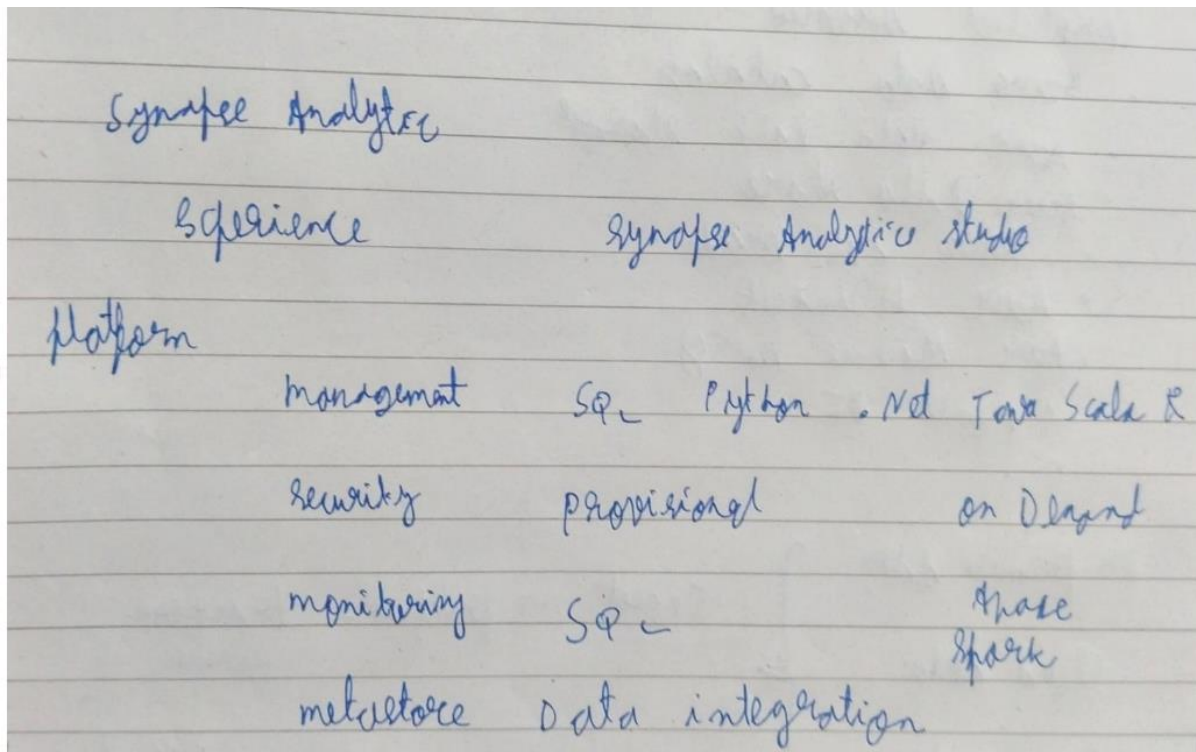 Synapse Analytics
Experience Synapse Analytics studio
platform
management SQL Python .Net Java Scala R
security provisional on Demand
monitoring SQL Apace
Spark
metastore Data integration